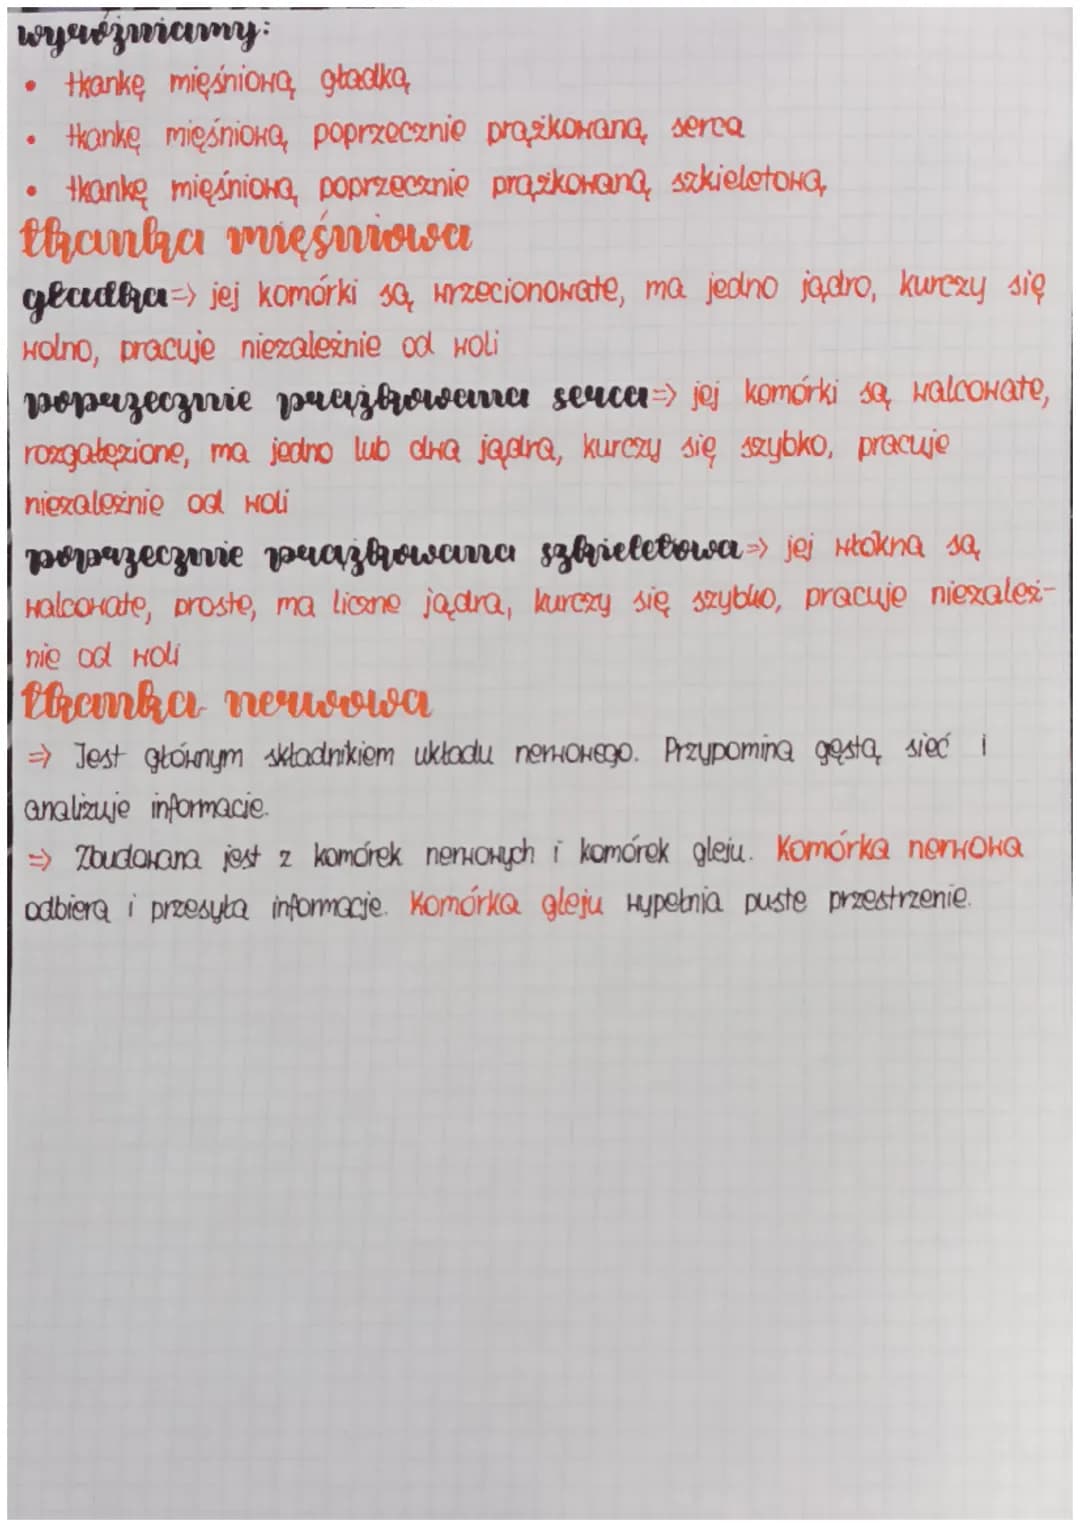 wyróżniamy:
• tkankę mięśniową gładką
• tkankę mięśniową poprzecznie prążkowaną serca
• tkankę mięśniową poprzecznie prążkowaną szkieletową
tkanka mięśniowa
gładka => jej komórki są wrzecionowate, ma jedno jądro, kurczy się
wolno, pracuje niezależnie od woli
poprzecznie prążkowana serca => jej komórki są walcowate,
rozgałęzione, ma jedno lub dwa jądra, kurczy się szybko, pracuje
niezależnie od woli
poprzecznie prążkowana szkieletowa => jej włókna są
walcowate, proste, ma liczne jądra, kurczy się szybko, pracuje niezależ-
nie od woli
tkanka nerwowa
=> Jest głównym składnikiem układu nerwowego. Przypomina gęstą sieć i
analizuje informacje.
=> Zbudowana jest z komórek nerwowych i komórek gleju. Komórka nerwowa
odbiera i przesyła informacje. Komórka gleju wypełnia puste przestrzenie.